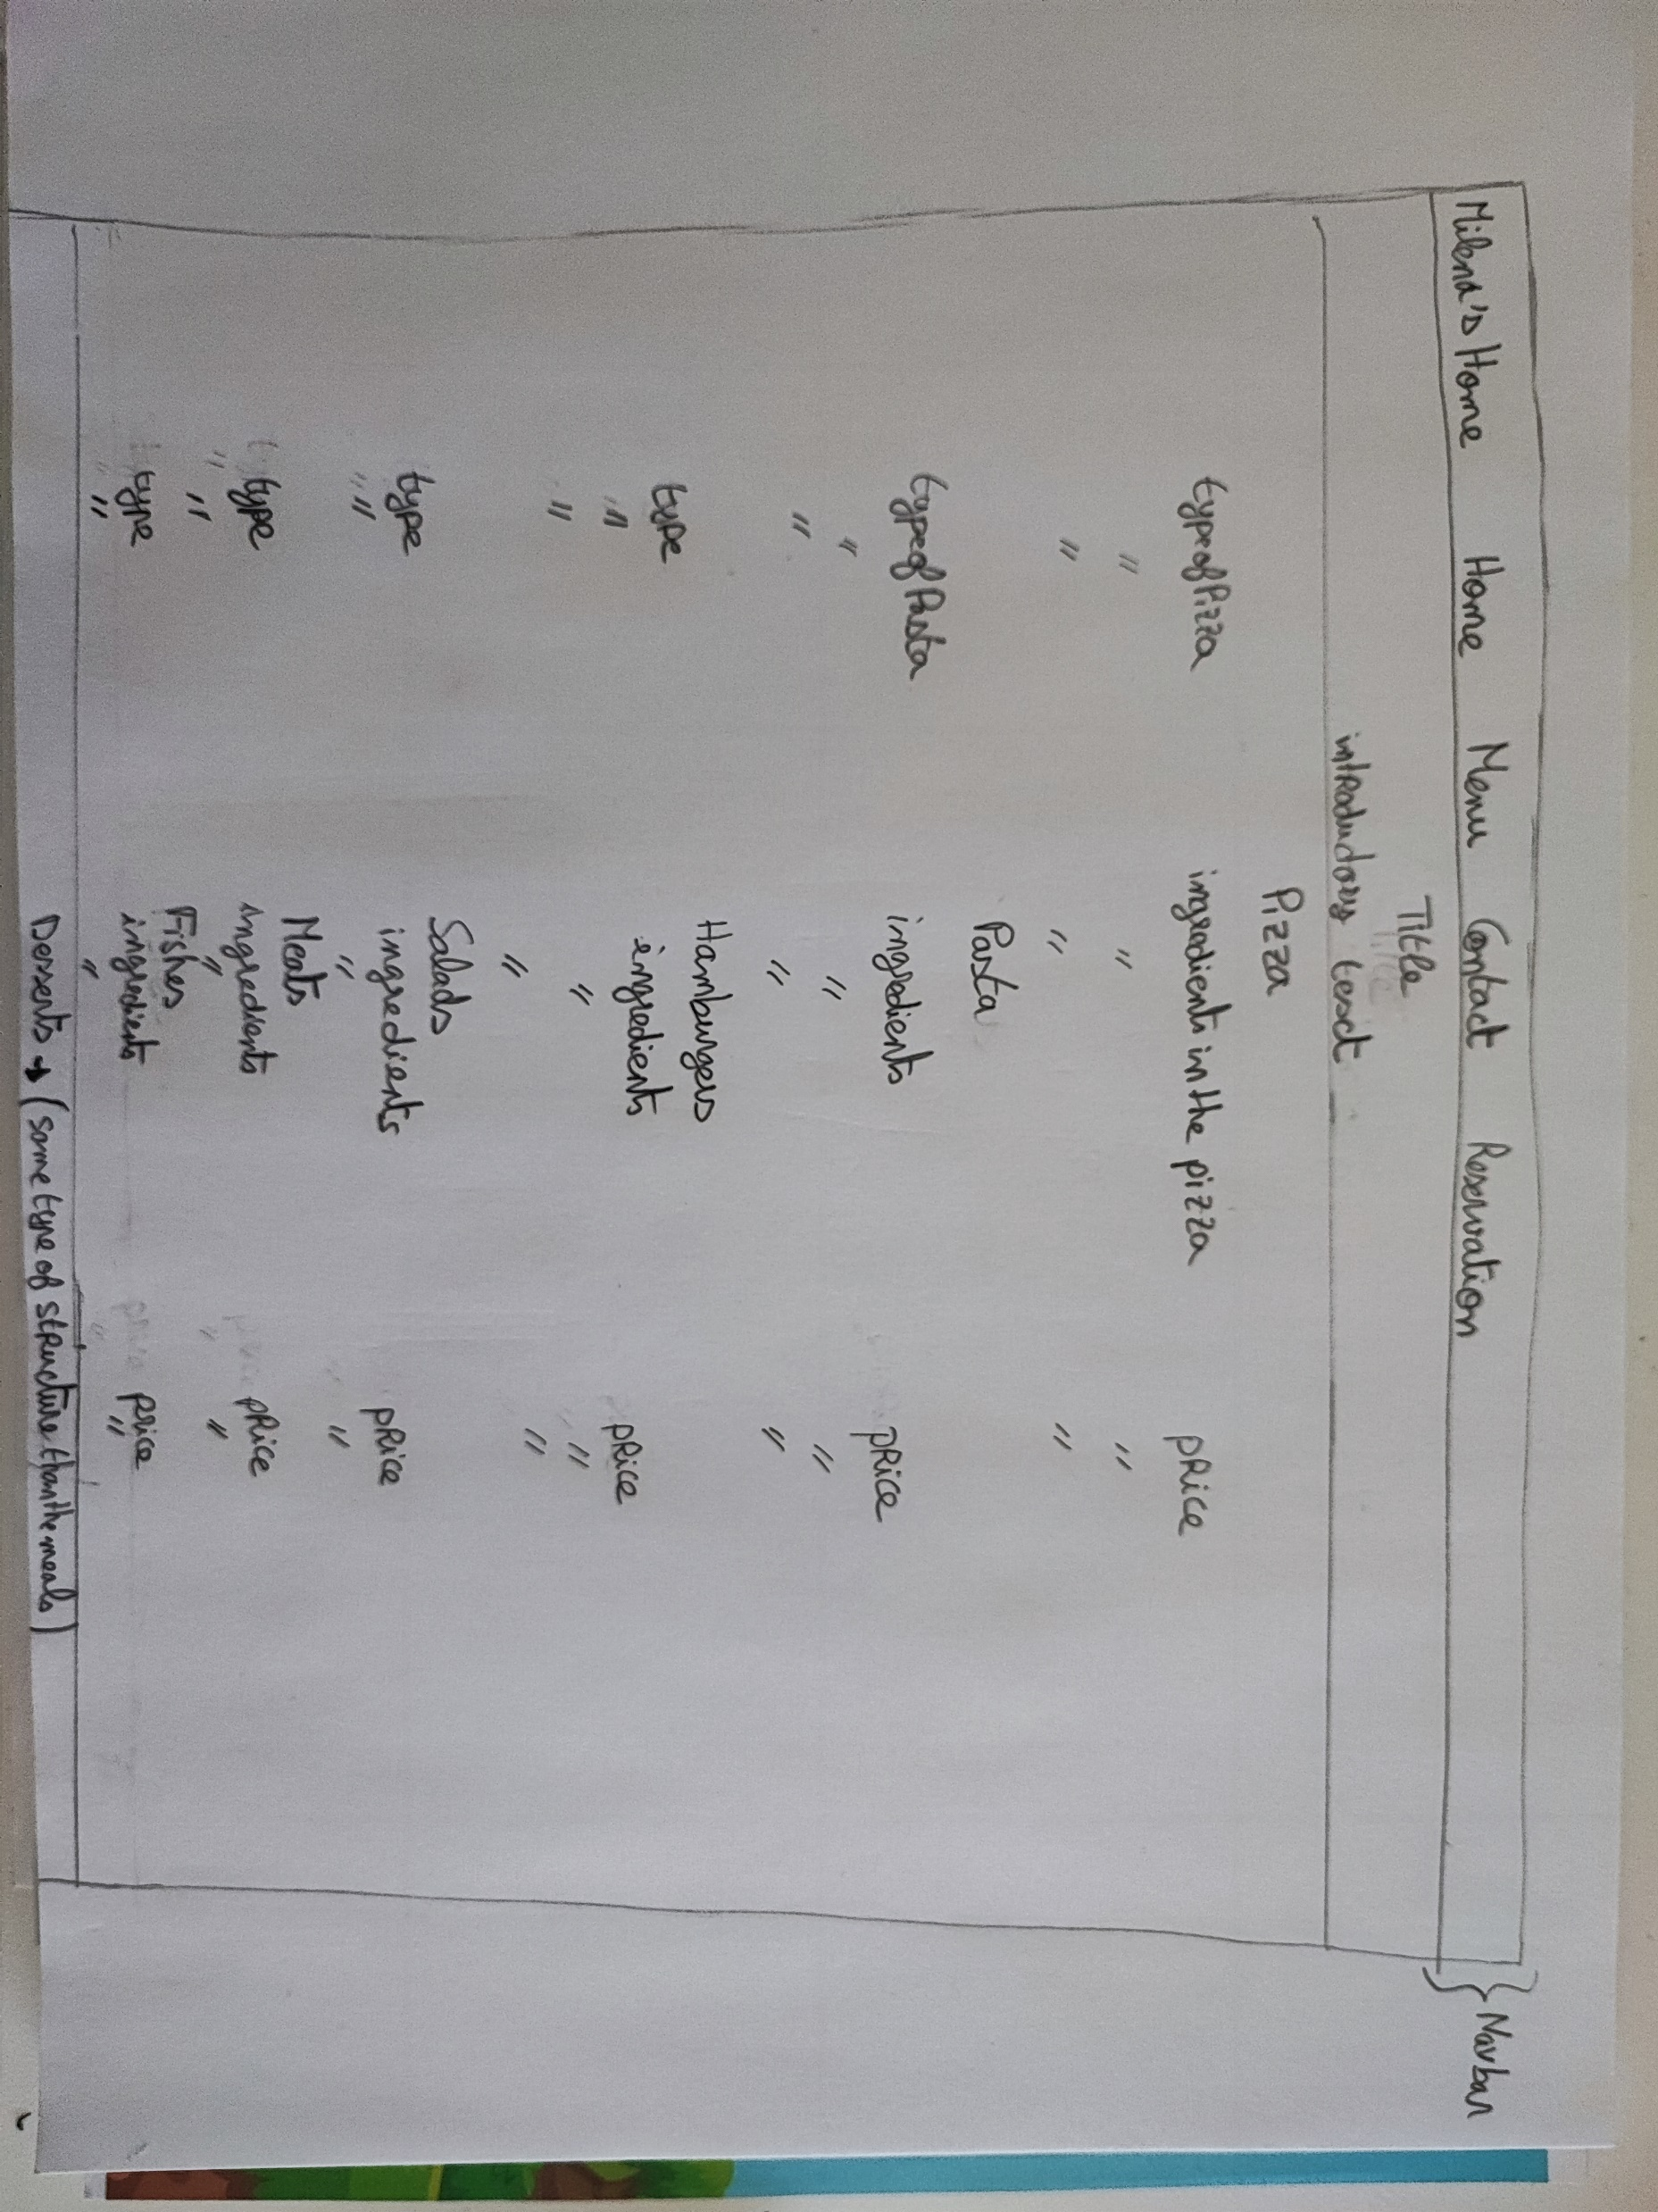 Milena's Home Home Menu Contact Reservation } Navbar
Title
introductory text
Pizza
type of Pizza ingredients in the pizza price
" " "
" " "
Pasta
type of Pasta ingredients price
" " "
" " "
Hamburgers
type ingredients price
" " "
" " "
Salads
type ingredients price
" " "
Meats
type ingredients price
" " "
Fishes
type ingredients price
" " "
Desserts → (same type of structure than the meals)